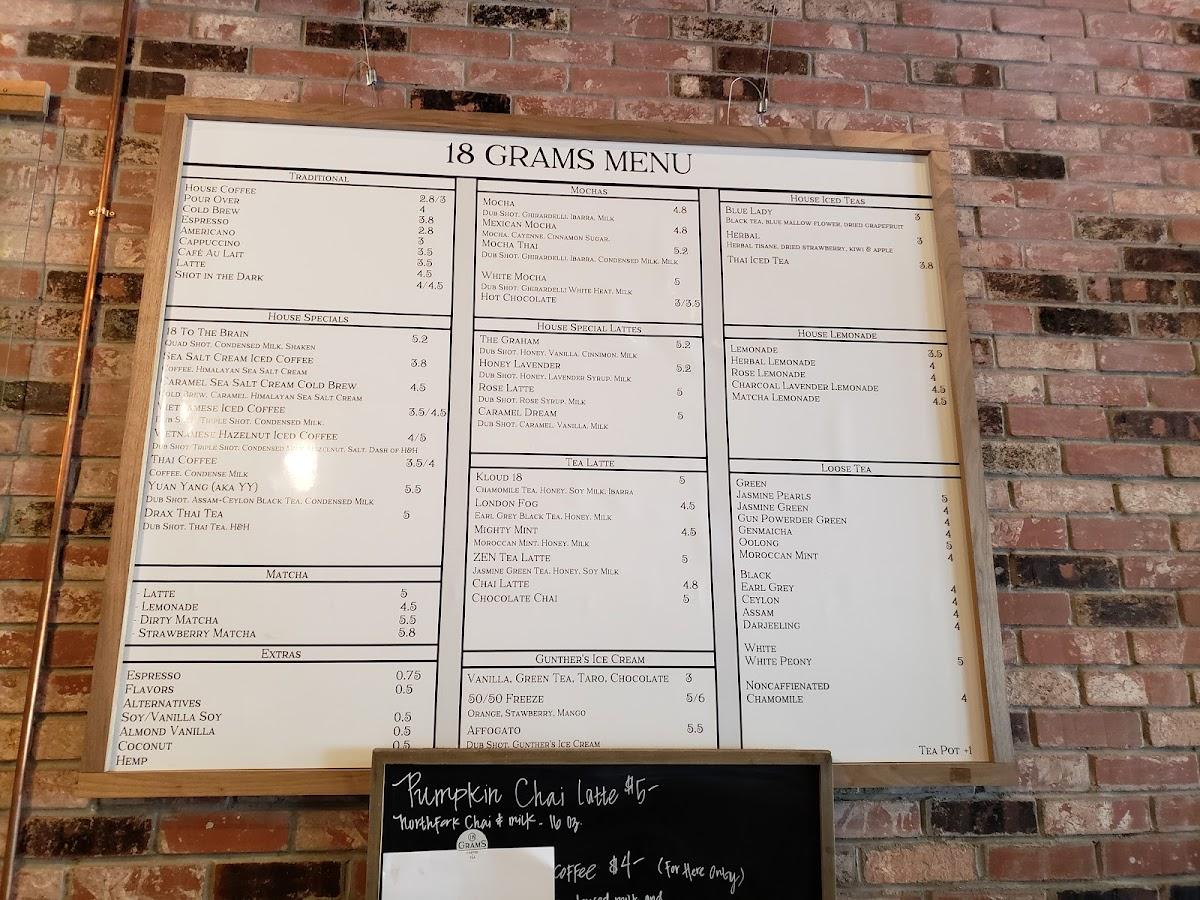 18 GRAMS MENU
TRADITIONAL
HOUSE COFFEE 2.8/3
POUR OVER 4
COLD BREW 3.8
ESPRESSO 2.8
AMERICANO 3
CAPPUCCINO 3.5
CAFÉ AU LAIT 3.5
LATTE 4.5
SHOT IN THE DARK 4/4.5
HOUSE SPECIALS
18 TO THE BRAIN 5.2
QUAD SHOT, CONDENSED MILK, SHAKEN
SEA SALT CREAM ICED COFFEE 3.8
COFFEE, HIMALAYAN SEA SALT CREAM
CARAMEL SEA SALT CREAM COLD BREW 4.5
COLD BREW, CARAMEL, HIMALAYAN SEA SALT CREAM
VIETNAMESE ICED COFFEE 3.5/4.5
DUB SHOT/TRIPLE SHOT, CONDENSED MILK.
VIETNAMESE HAZELNUT ICED COFFEE 4/5
DUB SHOT/TRIPLE SHOT, CONDENSED MILK, HAZELNUT, SALT, DASH OF H&H
THAI COFFEE 3.5/4
COFFEE, CONDENSE MILK
YUAN YANG (AKA YY) 5.5
DUB SHOT, ASSAM-CEYLON BLACK TEA, CONDENSED MILK
DRAX THAI TEA 5
DUB SHOT, THAI TEA, H&H
MATCHA
- LATTE 5
- LEMONADE 4.5
- DIRTY MATCHA 5.5
- STRAWBERRY MATCHA 5.8
EXTRAS
ESPRESSO 0.75
FLAVORS 0.5
ALTERNATIVES
SOY/VANILLA SOY 0.5
ALMOND VANILLA 0.5
COCONUT 0.5
HEMP
MOCHAS
MOCHA 4.8
DUB SHOT, GHIRARDELLI, IBARRA, MILK
MEXICAN MOCHA 4.8
MOCHA, CAYENNE, CINNAMON SUGAR.
MOCHA THAI 5.2
DUB SHOT, GHIRARDELLI, IBARRA, CONDENSED MILK, MILK
WHITE MOCHA 5
DUB SHOT, GHIRARDELLI WHITE HEAT, MILK
HOT CHOCOLATE 3/3.5
HOUSE SPECIAL LATTES
THE GRAHAM 5.2
DUB SHOT, HONEY, VANILLA, CINNIMON, MILK
HONEY LAVENDER 5.2
DUB SHOT, HONEY, LAVENDER SYRUP, MILK
ROSE LATTE 5
DUB SHOT, ROSE SYRUP, MILK
CARAMEL DREAM 5
DUB SHOT, CARAMEL, VANILLA, MILK
TEA LATTE
KLOUD 18 5
CHAMOMILE TEA, HONEY, SOY MILK, IBARRA
LONDON FOG 4.5
EARL GREY BLACK TEA, HONEY, MILK
MIGHTY MINT 4.5
MOROCCAN MINT, HONEY, MILK
ZEN TEA LATTE 5
JASMINE GREEN TEA, HONEY, SOY MILK
CHAI LATTE 4.8
CHOCOLATE CHAI 5
GUNTHER'S ICE CREAM
VANILLA, GREEN TEA, TARO, CHOCOLATE 3
50/50 FREEZE 5/6
ORANGE, STAWBERRY, MANGO
AFFOGATO 5.5
DUB SHOT, GUNTHER'S ICE CREAM
HOUSE ICED TEAS
BLUE LADY 3
BLACK TEA, BLUE MALLOW FLOWER, DRIED GRAPEFRUIT
HERBAL 3
HERBAL TISANE, DRIED STRAWBERRY, KIWI & APPLE
THAI ICED TEA 3.8
HOUSE LEMONADE
LEMONADE 3.5
HERBAL LEMONADE 4
ROSE LEMONADE 4
CHARCOAL LAVENDER LEMONADE 4.5
MATCHA LEMONADE 4.5
LOOSE TEA
GREEN
JASMINE PEARLS 5
JASMINE GREEN 4
GUN POWERDER GREEN 4
GENMAICHA 4
OOLONG 5
MOROCCAN MINT 4
BLACK
EARL GREY 4
CEYLON 4
ASSAM 4
DARJEELING 4
WHITE
WHITE PEONY 5
NONCAFFIENATED
CHAMOMILE 4
TEA POT +1
Pumpkin Chai latte $5-
Northfork Chai & milk - 16 oz.
18
GRAMS
COFFEE
TEA
coffee $4- (For Here Only)
milk and